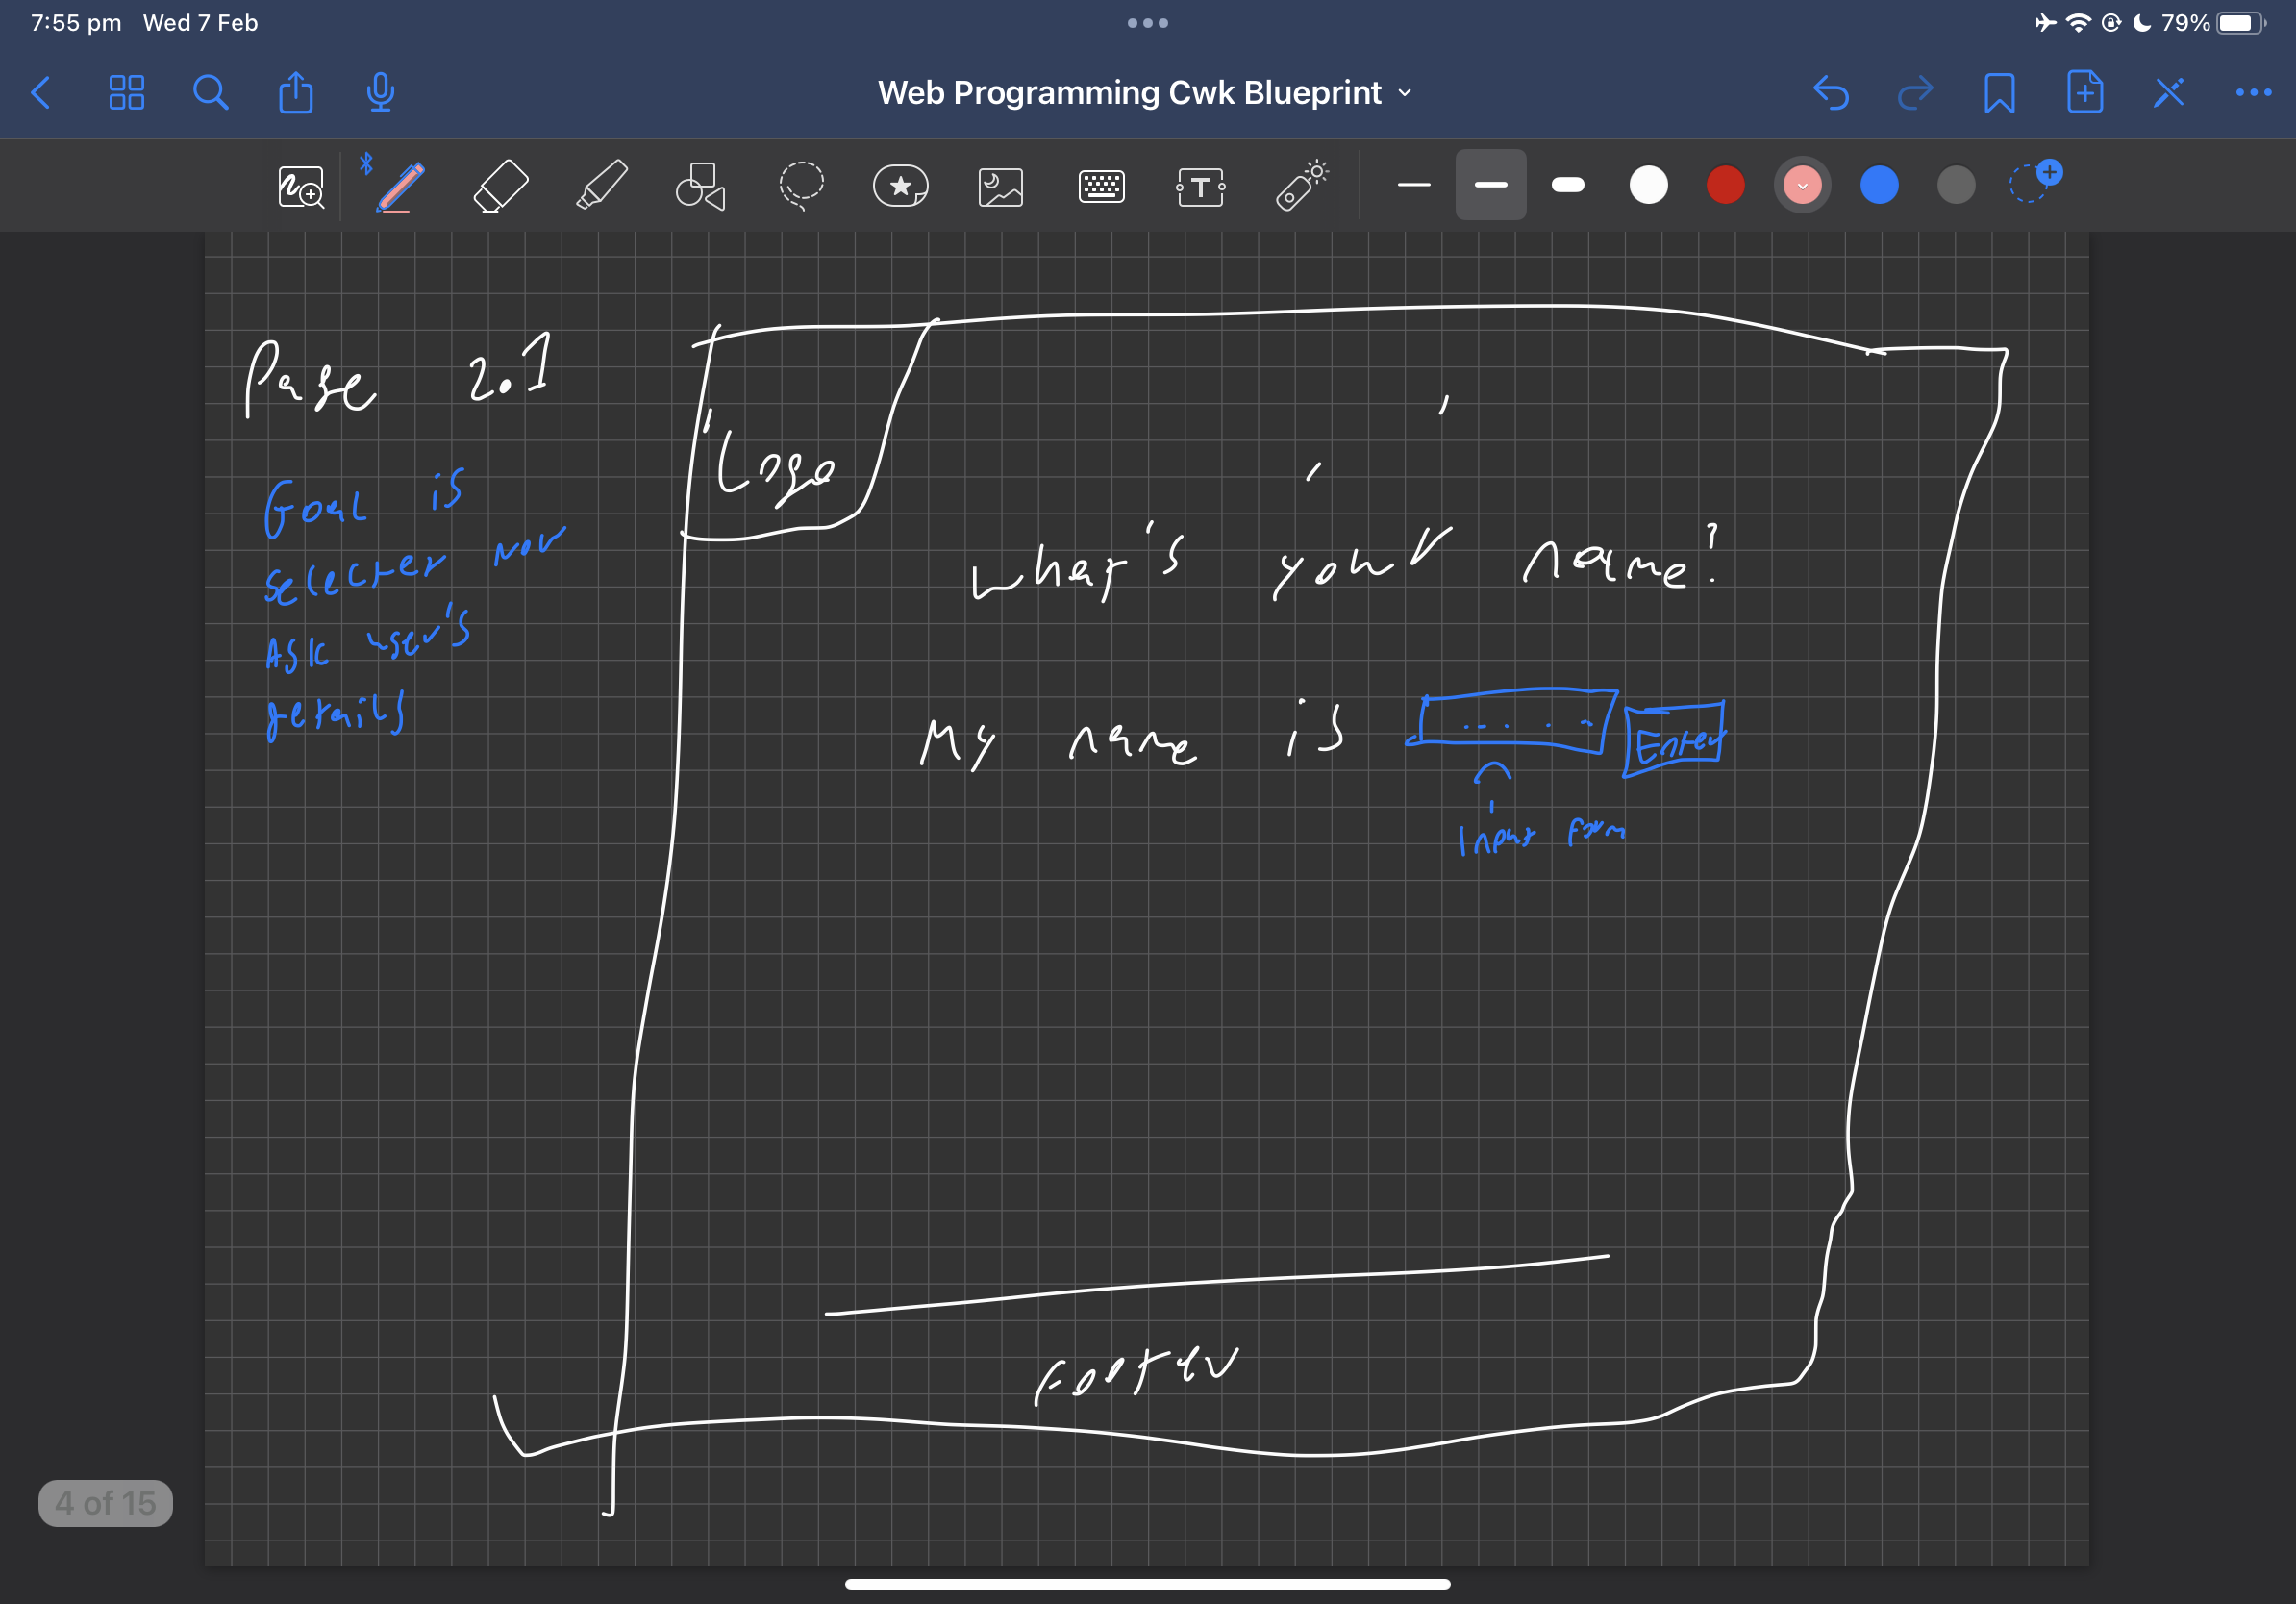 7:55 pm Wed 7 Feb
79%
Web Programming Cwk Blueprint
T
Page 2.1
Logo
Goal is
selected now
Ask user's
details
What's your name?
My name is
Enter
Input form
Footer
4 of 15